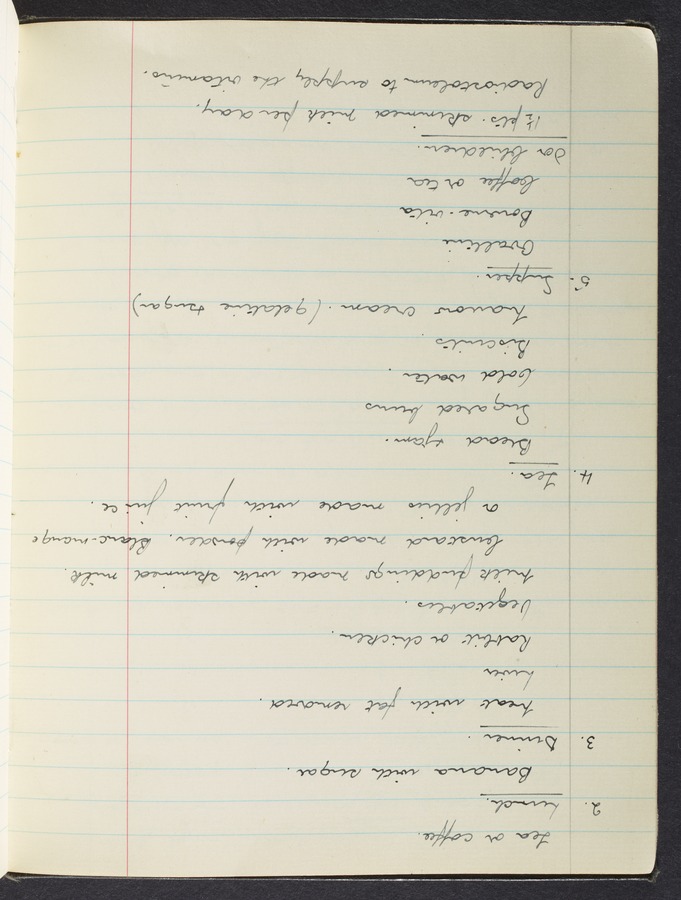 Tea or coffee.
2. Lunch.
Banana with sugar.
3. Dinner.
Meat with fat removed.
Liver
Rabbit or chicken.
Vegetables.
Milk puddings made with skimmed milk.
Custard made with powder. Blanc-mange
or jellies made with fruit juice.
4. Tea.
Bread & jam.
Sugared buns
Cold water.
Biscuits.
Havons cream. (gelatine & sugar)
5. Supper.
Ovaltine
Bourne-vita
Coffee or tea
For Children.
1½ pts. skimmed milk per day.
Radiostoleum to supply the vitamins.